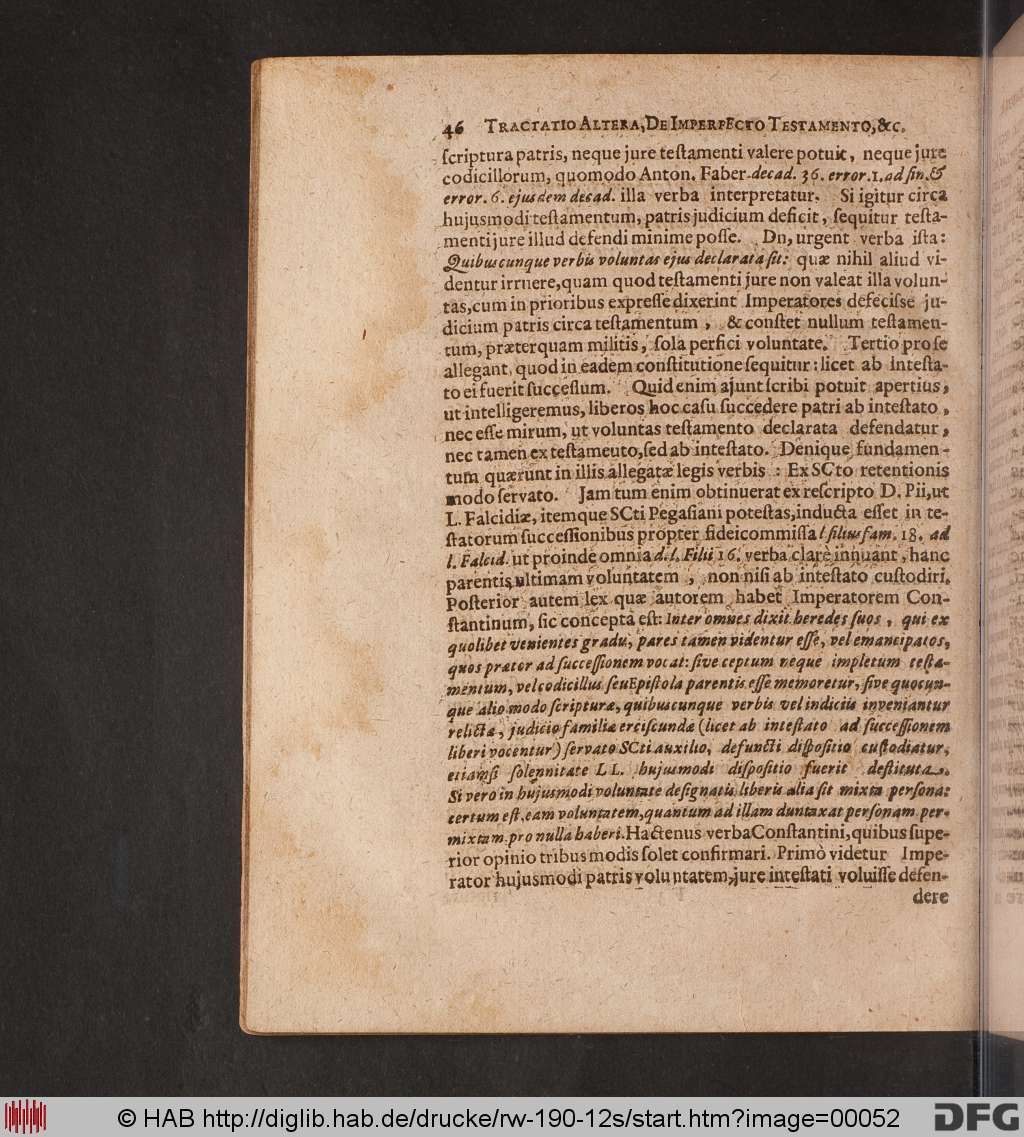 46 TRACTATIO ALTERA, DE IMPERFECTO TESTAMENTO, &c.
ſcriptura patris, neque jure teſtamenti valere potuit, neque jure
codicillorum, quomodo Anton. Faber decad. 36. error. 1. ad fin. &
error. 6. ejusdem decad. illa verba interpretatur. Si igitur circa
hujusmodi teſtamentum, patris judicium deficit, ſequitur teſta-
menti jure illud defendi minime poſſe. Dn, urgent verba iſta:
Quibuscunque verbis voluntas ejus declarata ſit: quæ nihil aliud vi-
dentur irruere, quam quod teſtamenti jure non valeat illa volun-
tas, cum in prioribus expreſſe dixerint Imperatores defeciſse ju-
dicium patris circa teſtamentum, & conſtet nullum teſtamen-
tum, præterquam militis, ſola perfici voluntate. Tertio pro ſe
allegant, quod in eadem conſtitutione ſequitur: licet ab inteſta-
to ei fuerit ſucceſſum. Quid enim ajunt ſcribi potuit apertius,
ut intelligeremus, liberos hoc caſu ſuccedere patri ab inteſtato,
nec eſſe mirum, ut voluntas teſtamento declarata defendatur,
nec tamen ex teſtameuto, ſed ab inteſtato. Denique fundamen-
tum quærunt in illis allegatæ legis verbis: Ex SCto retentionis
modo ſervato. Jam tum enim obtinuerat ex reſcripto D. Pii, ut
L. Falcidiæ, itemque SCti Pegaſiani poteſtas, inducta eſſet in te-
ſtatorum ſucceſſionibus propter fideicommiſſa l filius fam. 18. ad
l. Falcid. ut proinde omnia d. l. Filii 16. verba clarè innuant, hanc
parentis ultimam voluntatem, non niſi ab inteſtato cuſtodiri.
Poſterior autem lex quæ autorem habet Imperatorem Con-
ſtantinum, ſic concepta eſt: Inter omnes dixit heredes ſuos, qui ex
quolibet venientes gradu, pares tamen videntur eſſe, vel emancipatos,
quos prætor ad ſucceſſionem vocat: ſive ceptum neque impletum teſta-
mentum, vel codicillus ſeu Epiſtola parentis eſſe memoretur, ſive quocun-
que alio modo ſcripturæ, quibuscunque verbis vel indiciis inveniantur
relictæ, judicio familiæ erciſcundæ (licet ab inteſtato ad ſucceſſionem
liberi vocentur) ſervato SCti auxilio, defuncti diſpoſitio cuſtodiatur,
etiamſi ſolennitate LL. hujusmodi diſpoſitio fuerit deſtituta.
Si vero in hujusmodi voluntate deſignatis liberis alia ſit mixta perſona:
certum eſt, eam voluntatem, quantum ad illam duntaxat perſonam per-
mixtam, pro nulla haberi. Hactenus verba Conſtantini, quibus ſupe-
rior opinio tribus modis ſolet confirmari. Primò videtur Impe-
rator hujusmodi patris voluntatem, jure inteſtati voluiſſe defen-
dere
© HAB http://diglib.hab.de/drucke/rw-190-12s/start.htm?image=00052
DFG